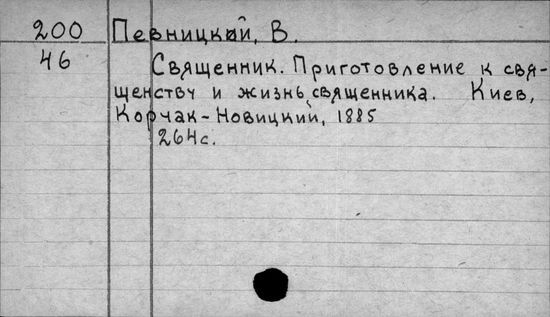 200 Певницкий, В.
46 Священник. Приготовление к свя-
щенству и жизнь священника. Киев,
Корчак-Новицкий, 1885
264с.